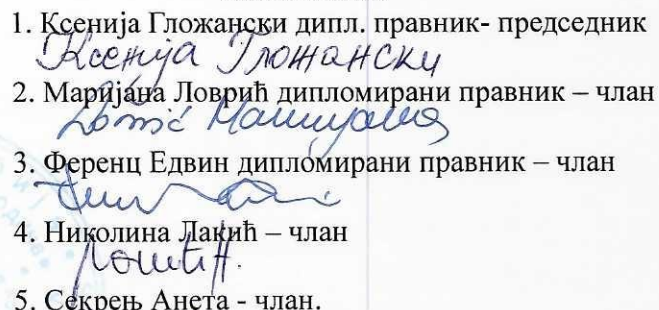 1. Ксенија Гложански дипл. правник- председник
Ксенија Гложански
2. Маријана Ловрић дипломирани правник – члан
Ловрић Маријана
3. Ференц Едвин дипломирани правник – члан
4. Николина Лакић – члан
5. Секрењ Анета - члан.